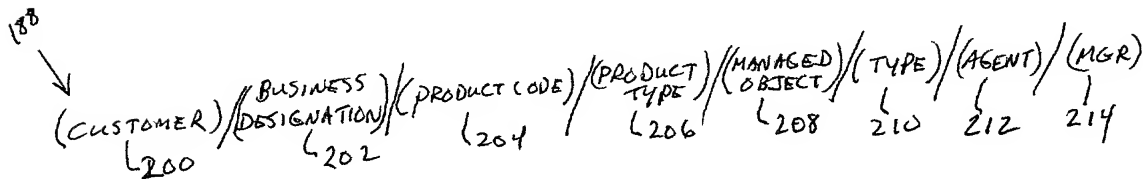 188
(CUSTOMER)/(BUSINESS DESIGNATION)/(PRODUCT CODE)/(PRODUCT TYPE)/(MANAGED OBJECT)/(TYPE)/(AGENT)/(MGR)
200 202 204 206 208 210 212 214